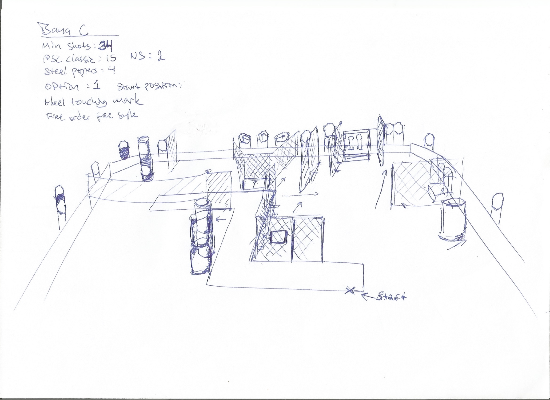 Bana C
Min shots: 34
IPSC classic: 15 NS: 2
Steel popper: 4
Option: 1 Start position:
Heel touching mark
Free order free style
Start